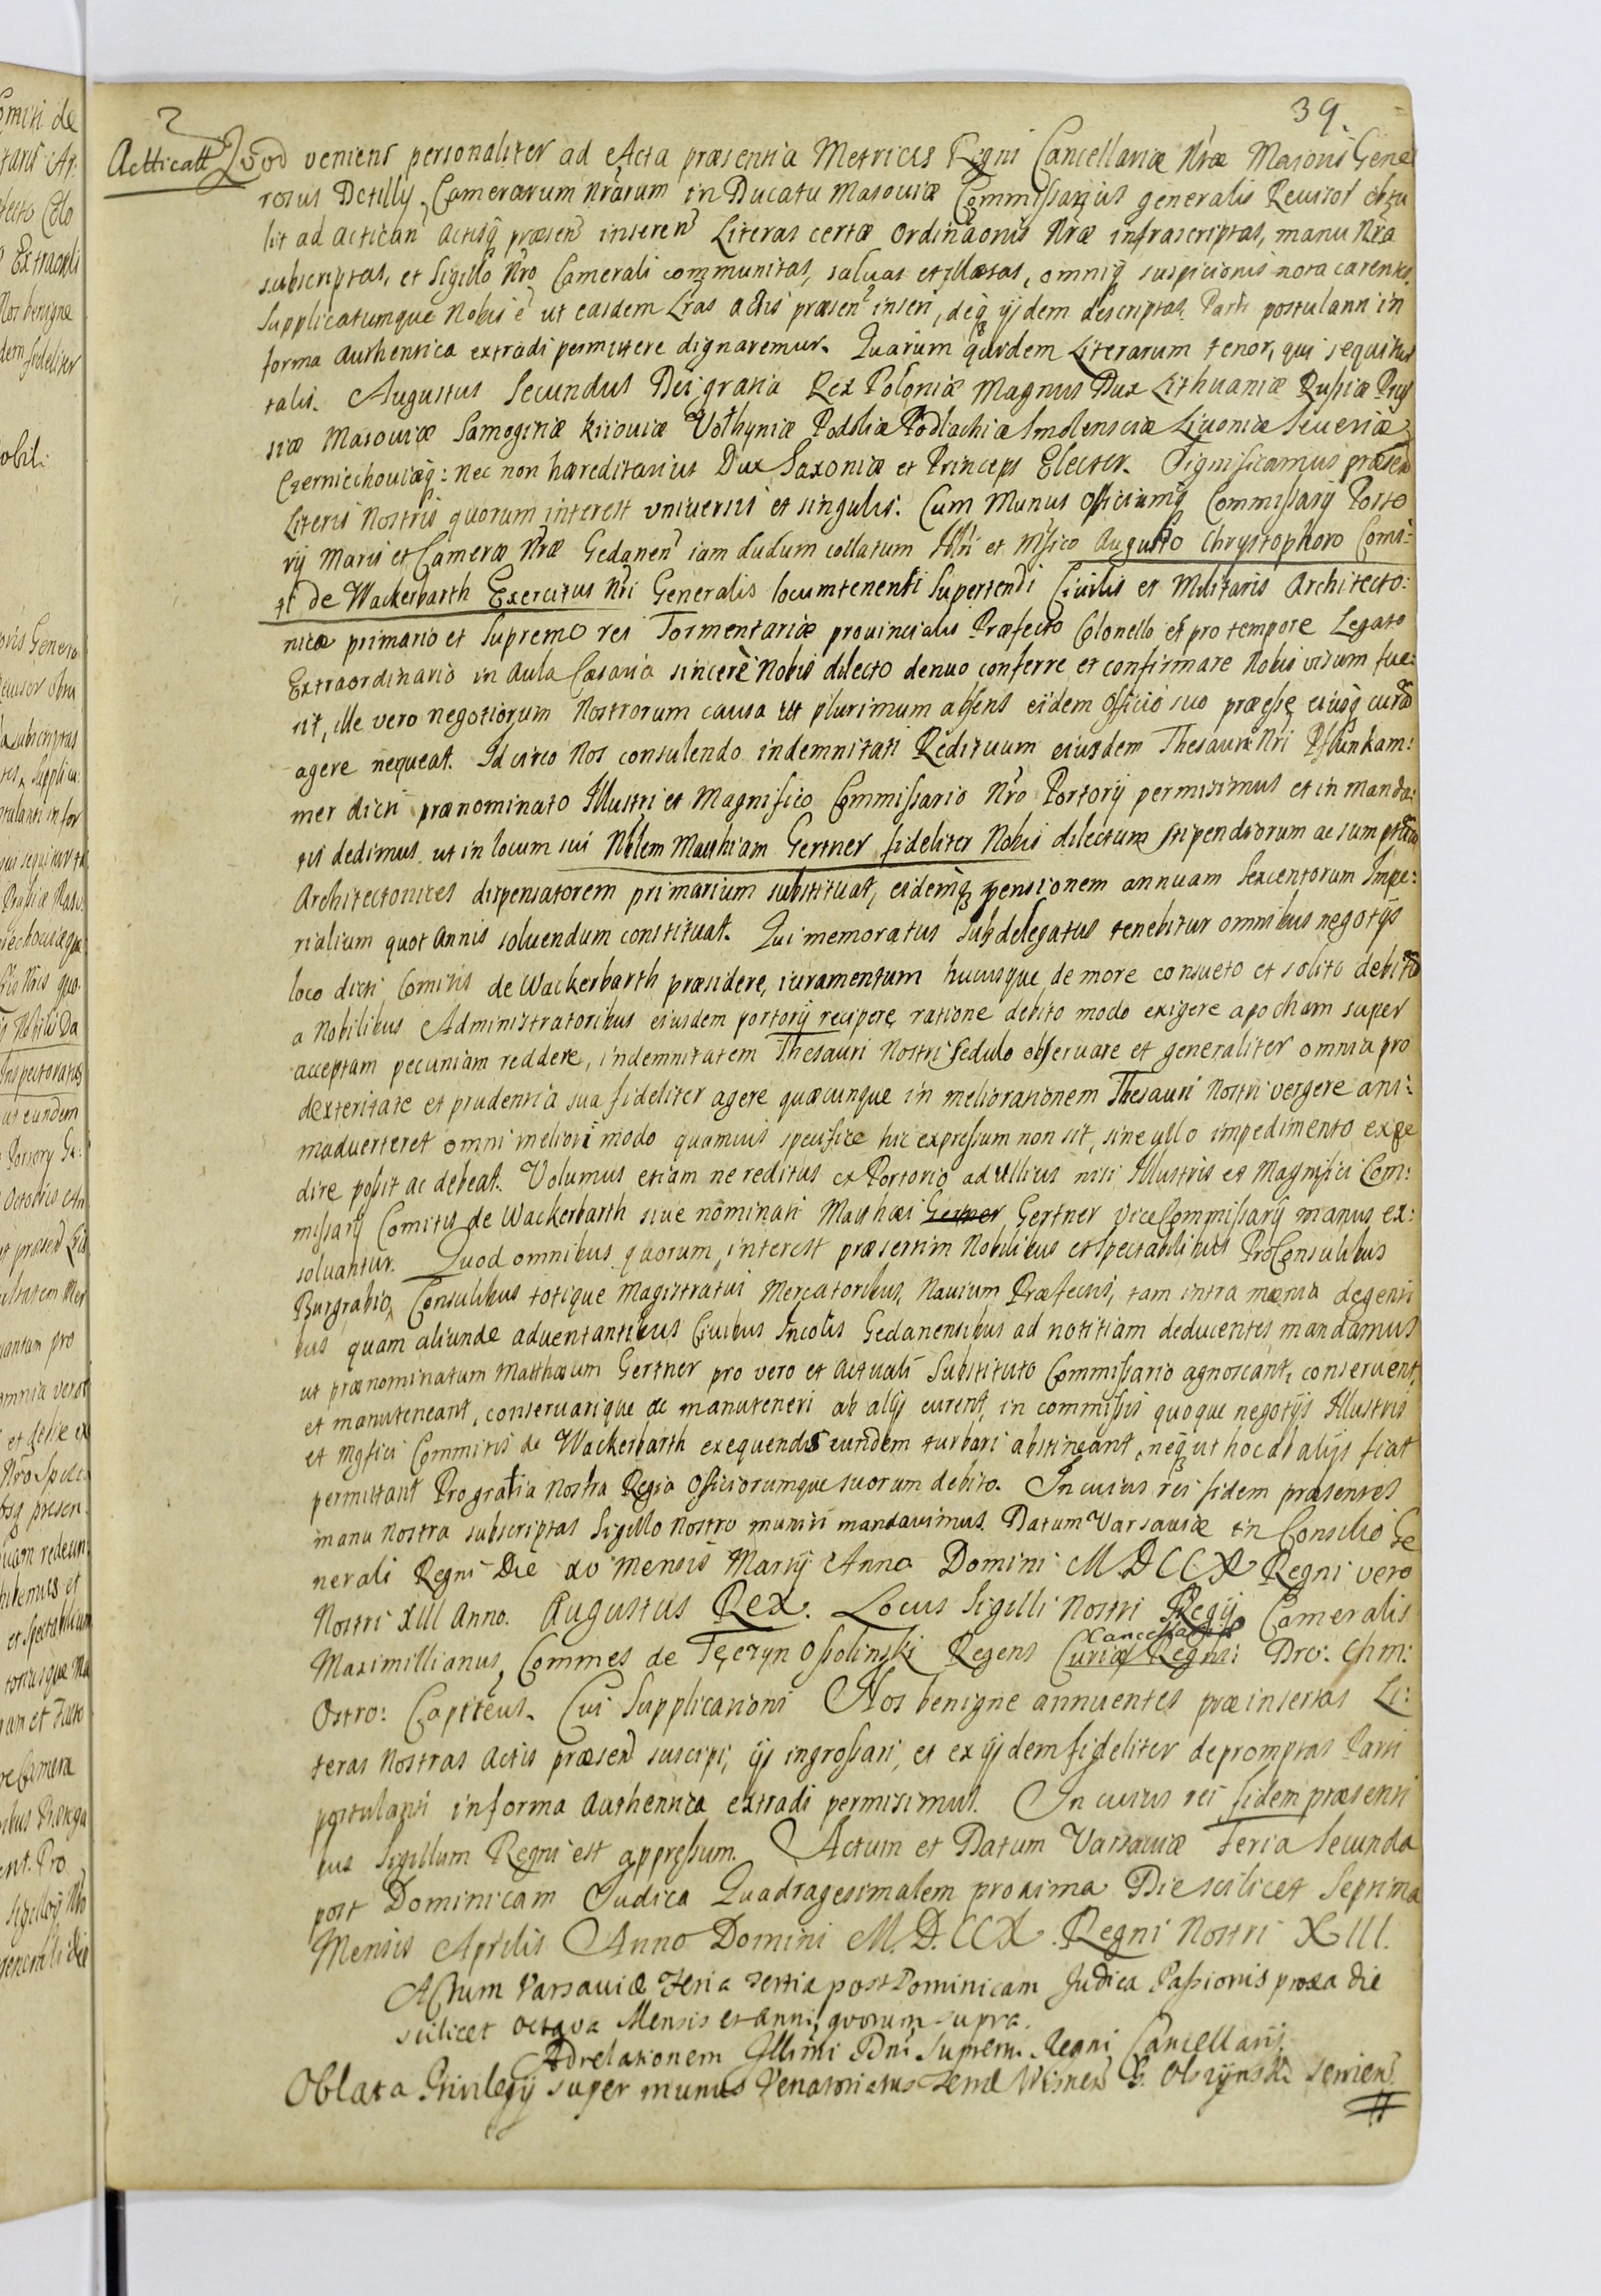 39.
Actticatt Quod veniens personaliter ad Acta præsentia Metrices Regni Cancellariæ Nræ Maioris Gene
rosus Detilly, Camerarum Nrarum in Ducatu Masouiæ Commissarius generalis Reuisor obtu
lit ad actican̄ actisq̨ præsen̄ inseren̄ Literas certæ ordinaonis Nræ infrascriptas, manu Nra
subscriptas, et Sigillo Nro Camerali communitas, saluas et illæsas, omniq̨ suspicionis nota carentes.
Supplicatumque Nobis ē ut easdem Lras actis præsen̄ inseri, deq̨ ijsdem descriptas Parti postulanti in
forma authentica extradi permittere dignaremur. Quarum quidem Literarum tenor, qui sequitur
talis. Augustus Secundus Dei gratia Rex Poloniæ Magnus Dux Lithuaniæ Russiæ Prus
siæ Masouiæ Samogitiæ Kiiouiæ Volhyniæ Podoliæ Podlachiæ Smolensciæ Liuoniæ Seueriæ
Czerniechouiæq̨: nec non hæreditarius Dux Saxoniæ et Princeps Elector. Significamus præsen̄
Literis Nostris quorum interest vniuersis et singulis. Cum Munus Officiumq̨ Commissarij Porto
rij Maris et Cameræ Nræ Gedanen̄ iam dudum collatum Illri et Mfico Augusto Chrystophoro Comi:
ti de Wackerbarth Exercitus Nri Generalis locumtenenti Supertendi Ciuilis et Militaris Architecto:
nicæ primario et Supremo rei Tormentariæ prouincialis Præfecto Colonello et pro tempore Legato
Extraordinario in Aula Cæsaria sincerè Nobis dilecto denuo conferre et confirmare Nobis visum fue:
rit, ille vero negotiorum Nostrorum causa ut plurimum absens eidem Officio suo præesse eiusq̨ curā
agere nequeat. Idcirco Nos consulendo indemnitati Redituum eiusdem Thesauri Nri Pffunkam:
mer dicti prænominato Illustri et Magnifico Commissario Nro Portorij permisimus et in manda:
tis dedimus, ut in locum sui Nblem Matthiam Gertner fideliter Nobis dilectum stipendiorum ac sumptuū
Architectonices dispensatorem primarium substituat, eidemq̨ pensionem annuam Sexcentorum Impe:
rialium quot Annis soluendum constituat. Qui memoratus Subdelegatus tenebitur omnibus negotijs
loco dicti Comitis de Wackerbarth præsidere, iuramentum hucusque de more consueto et solito debitō
a Nobilibus Administratoribus eiusdem portorij recipere ratione debito modo exigere apocham super
acceptam pecuniam reddere, indemnitatem Thesauri Nostri sedulo obseruare et generaliter omnia pro
dexteritate et prudentia sua fideliter agere quæcunque in meliorationem Thesauri Nostri vergere ani:
maduerteret omni meliori modo quamuis specifice hic expressum non sit, sine ullo impedimento expe
dire possit ac debeat. Volumus etiam ne reditus ex Portorio ad ullius nisi Illustris et Magnifici Com:
missarij Comitis de Wackerbarth siue nominati Matthæi Gertner Gertner ViceCommissarij manus ex:
soluantur. Quod omnibus quorum interest præsertim Nobilibus et Spectabilibus ProConsulibus
Burgrabio, Consulibus totique Magistratui Mercatoribus, Nauium Præfectis, tam intra mænia degenti
bus quam aliunde aduentantibus Ciuibus Incolis Gedanensibus ad notitiam deducentes mandamus
ut prænominatum Matthæum Gertner pro vero et actuali Substituto Commissario agnoscant, conseruent,
et manuteneant, conseruarique ac manuteneri ab alijs curent, in commissis quoque negotijs Illustris
et Mgfici Commitis de Wackerbarth exequendis eundem turbari abstineant, neq̨ ut hoc ab alijs fiat
permittant Pro gratia Nostra Regia Officiorumque suorum debito. In cuius rei fidem præsentes
manu Nostra subscriptas Sigillo Nostro muniri mandauimus. Datum Varsauiæ in Consilio Ge
nerali Regni Die xv mensis Martij Anno Domini MDCCX Regni vero
Nostri XIII Anno. Augustus Rex. Locus Sigilli Nostri Regij Cameralis
Maximillianus Commes de Tęczyn Ossolinski Regens Cancellariæ Curiæ Regni: Dro: Chm:
Ostro: Capiteus. Cui Supplicationi Nos benigne annuentes præinsertas Li:
teras Nostras Actis præsen̄ suscipi, ijs ingrossari, et ex ijsdem fideliter depromptas Parti
postulanti in forma Authentica extradi permisimus. In cuius rei fidem præsenti
bus Sigillum Regni est appressum. Actum et Datum Varsauiæ Feria Secunda
post Dominicam Judica Quadragesimalem proxima Die scilicet Septima
Mensis Aprilis Anno Domini M.D.CCX. Regni Nostri XIII.
Actum Varsauiæ Feria Tertia post Dominicam Judica Passionis proxa die
scilicet octava Mensis et Anni, quorum supra.
Ad relationem Illimi Dni Supremi Regni Cancellarij.
Oblata Privilegij super munus Venatoriatus Terræ